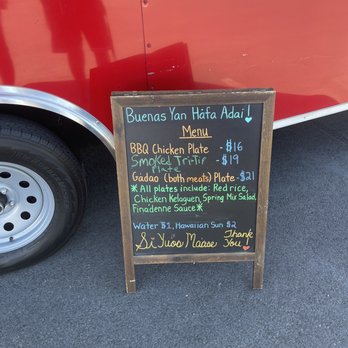 Buenas Yan Hafa Adai!
Menu
BBQ Chicken Plate - $16
Smoked Tri-Tip - $19
Plate
Gadao (both meats) Plate - $21
* All plates include: Red rice,
Chicken Kelaguen, Spring Mix Salad,
Finadenne Sauce *
Water $1, Hawaiian Sun $2
Si Yuos Maase Thank
You!